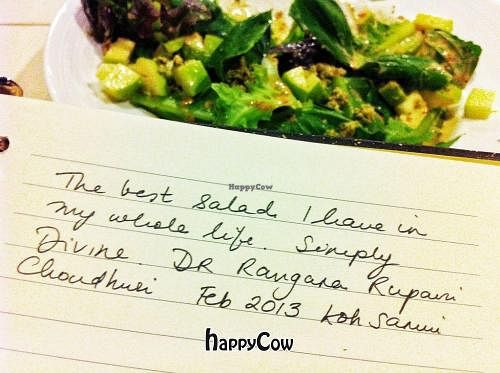 HappyCow
The best salad I have in
my whole life. Simply
Divine. DR Rangana Rupavi
Choudhuri Feb 2013 Koh Samui
happyCow